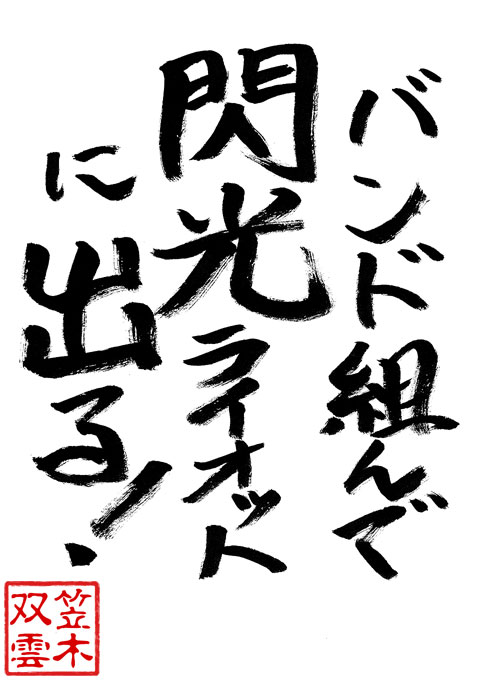 バンド組んで
閃光ライオット
に出る！
笠木
双雲